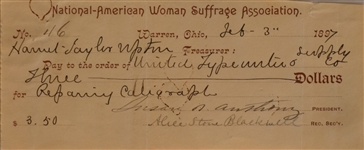 National-American Woman Suffrage Association.
No. 116 Warren, Ohio, Feb - 3" 1897
Harriet Taylor Upton Treasurer:
Pay to the order of United Typewriter & Supply Co
Three Dollars
for Repairing Caligraph
Susan B. Anthony PRESIDENT.
$ 3.50 Alice Stone Blackwell REC. SEC'Y.